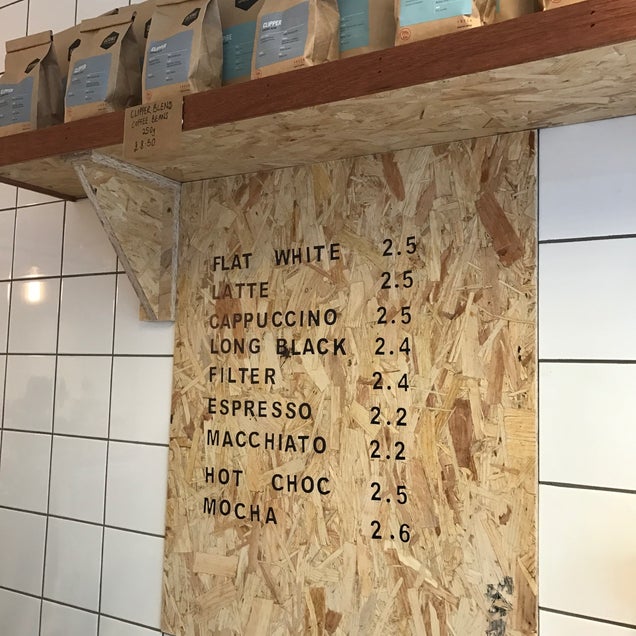 CLIPPER
CLIPPER
CLIPPER
CLIPPER BLEND
COFFEE BEANS
250g
£8.50
FLAT WHITE 2.5
LATTE 2.5
CAPPUCCINO 2.5
LONG BLACK 2.4
FILTER 2.4
ESPRESSO 2.2
MACCHIATO 2.2
HOT CHOC 2.5
MOCHA 2.6